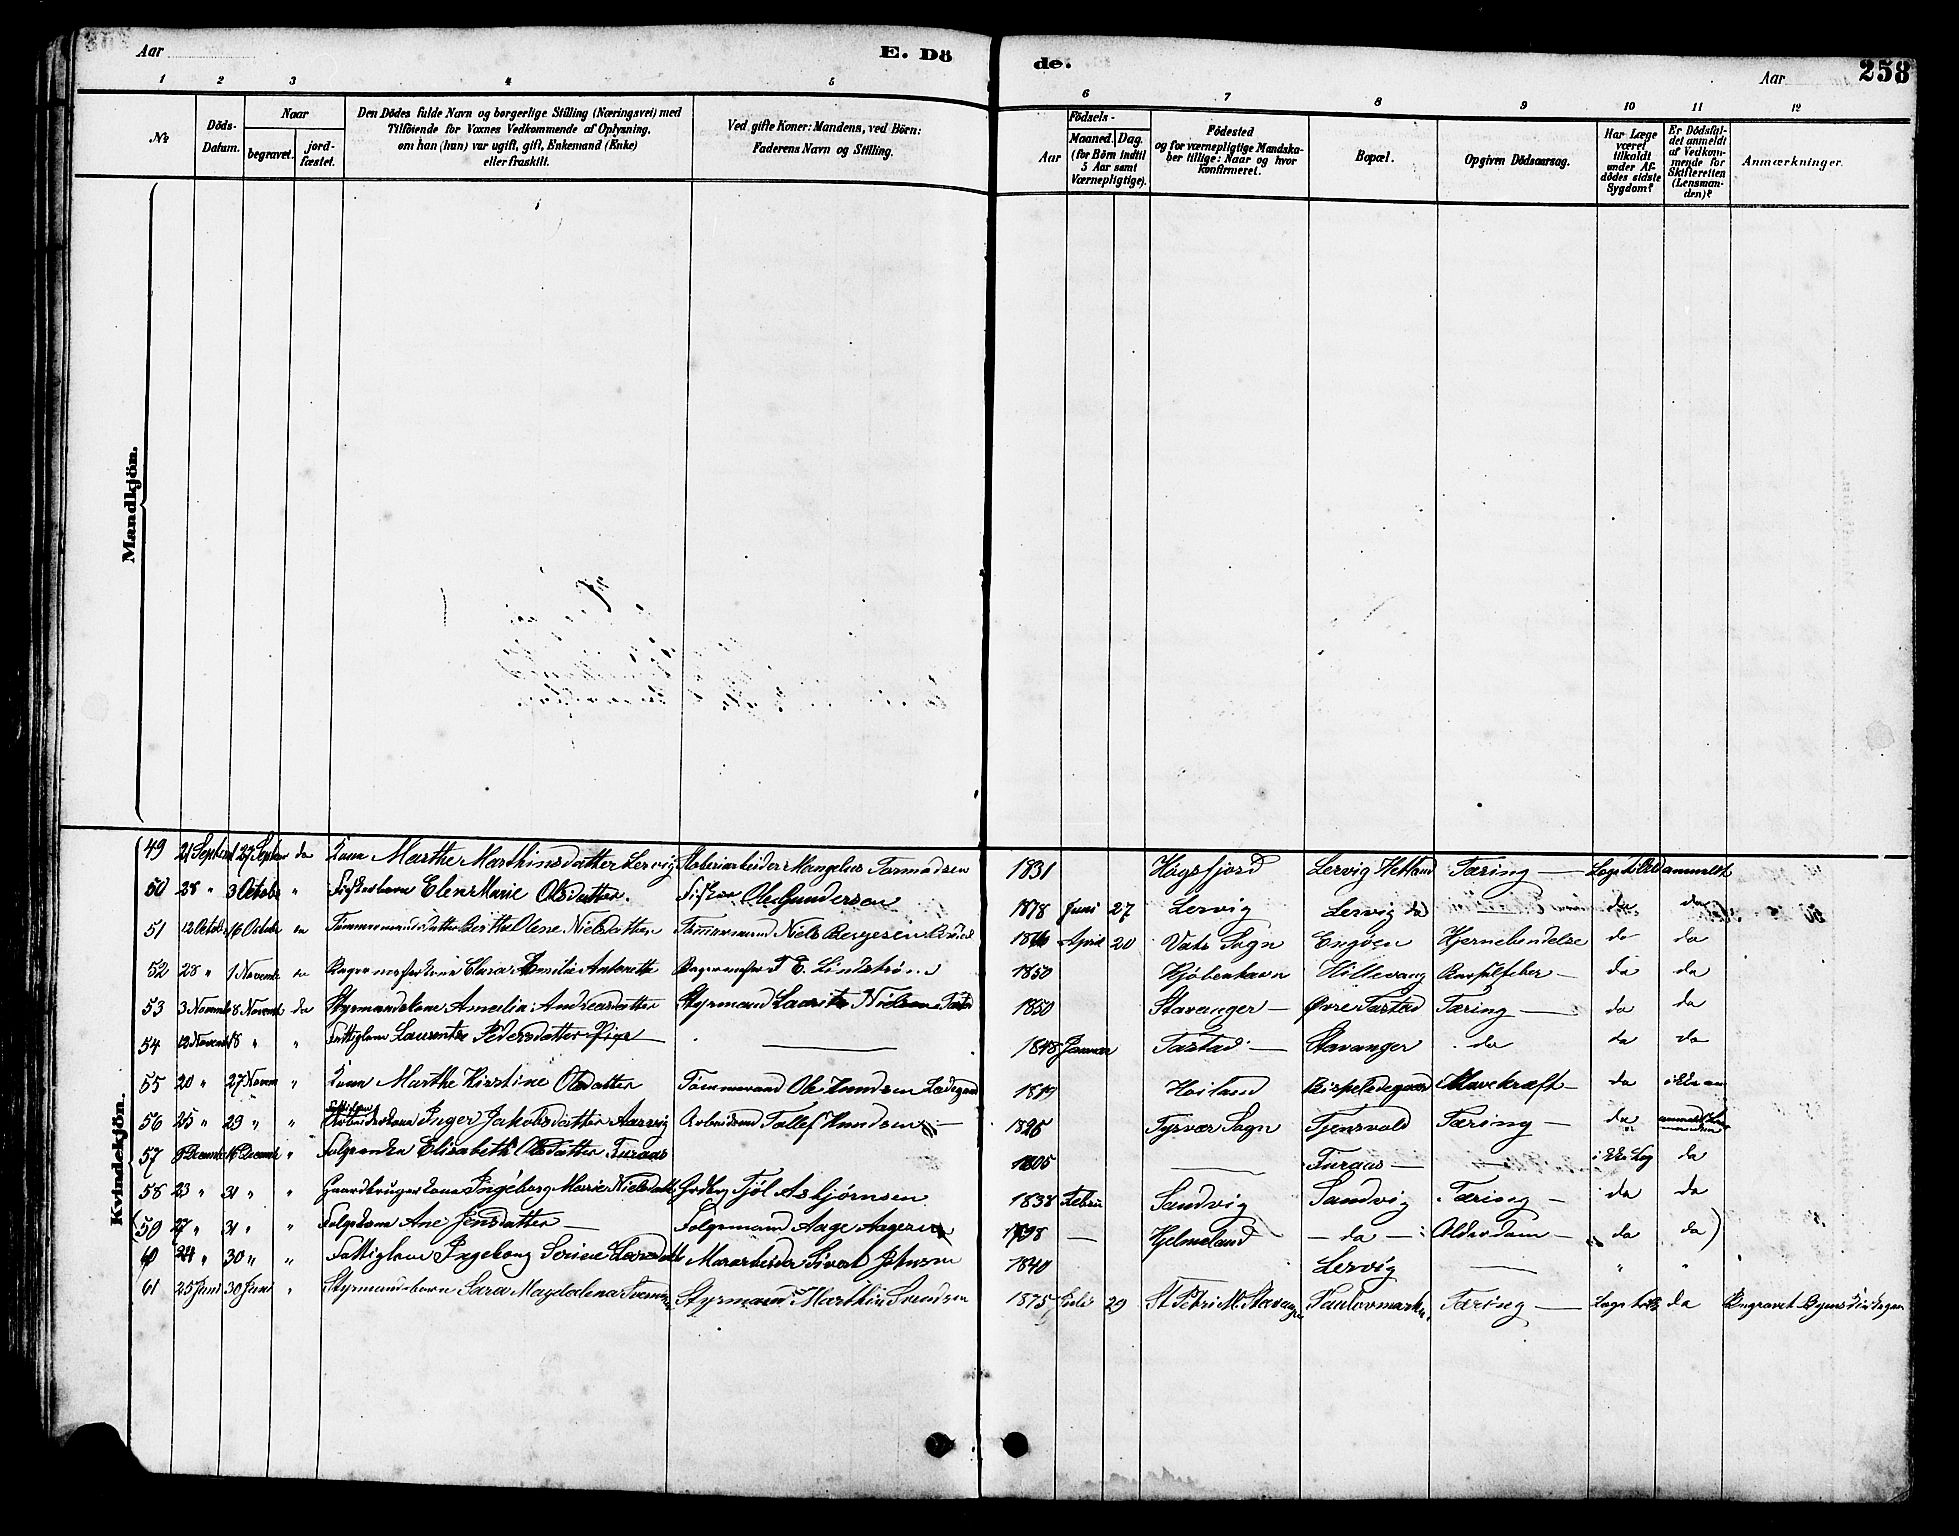 Aar
E. Dö
de.
Aar
258
1 2 3 4 5 6 7 8 9 10 11 12
No
Döds-Datum.
Naar
begravet.
jord-fæstet.
Den Dödes fulde Navn og borgerlige Stilling (Næringsvei) med
Tilföiende for Voxnes Vedkommende af Oplysning,
om han (hun) var ugift, gift, Enkemand (Enke)
eller fraskilt.
Ved gifte Koner: Mandens, ved Börn:
Faderens Navn og Stilling.
Födsels-
Aar
Maaned. Dag.
(for Börn indtil
5 Aar samt
Værnepligtige).
Födested
og for værnepligtige Mandska-
ber tillige: Naar og hvor
konfirmeret.
Bopæl.
Opgiven Dödsaarsag.
Har Læge
været
tilkaldt
under Af-
dödes sidste
Sygdom?
Er Dödsfal-
det anmeldt
af Vedkom-
mende for
Skifteretten
(Lensman-
den)?
Anmærkninger.
Mandkjön.
Kvindekjön.
49 21 Septem 27 Septem da Kone Marthe Marthinsdatter Lervig Mangelus Tormodsen 1831 Høgsfjord Lervig Hetland Tæring anmeldt
50 28 " 3 Octobr " Fiskerbarn Elen Marie Olsdatter. Fisker Ole Gunderson 1878 Juni 27 Lervig Lervig da da
51 12 Octobr 16 Octobr Berthe Olene Nielsdatter Tømmermand Niels Bergesen April 20 Vats Sogn Engøen Hjernebendelse da da
52 28 " 1 Novemb Clara Emilie Antonette T. E. Lindstrøm 1850 Kjøbenhavn Hillevaag Barselfeber da da
53 3 Novemb 8 Novemb da Styrmandskone Amalia Andreasdatter Styrmand Laurits Nielsen Tastad 1850 Stavanger Øvre Tastad Tæring da da
54 12 Novemb 18 " " Fattiglem Laurentse Pedersdatter Pige 1848 Januar Tastad Stavanger da da da
55 20 " 27 Novem " Kone Marthe Kirstine Olsdatter Tømmermand Ole Knudsen Ladegaard 1819 Høiland Bispeladegaard Mavekræft da
56 25 " 29 " " Arbeiderkone Inger Jakobsdatter Aarvig Arbeidsm Tollef Knudsen 1825 Tysvær Sogn Tjensvold Tæring da
57 9 Decemb 16 Decemb " Folgeenke Elisabeth Olsdatter Turaas 1805 Turaas da
58 23 " 31 " " Gaardbrugerkone Ingeborg Marie Nielsdatt Grdbrg Tjøl Asbjørnsen 1838 Sandvig Sandvig Tæring da da
(59 27 " 31 " " Folgekone Ane Jensdatter Folgemand Aage Aagesen 1798 Hjelmeland da Alderdom da da)
60 24 " 30 " " Fattiglem Ingeborg Serine Sivert Johnsen 1840 Lervig " "
61 25 Juni 30 Juni " Styrmandsbarn Sara Magdalena Styrmand Marthin Svendsen 1875 Juli 29 St Petri M. Stavanger Tæring da Begravet Byens Kirkegaard